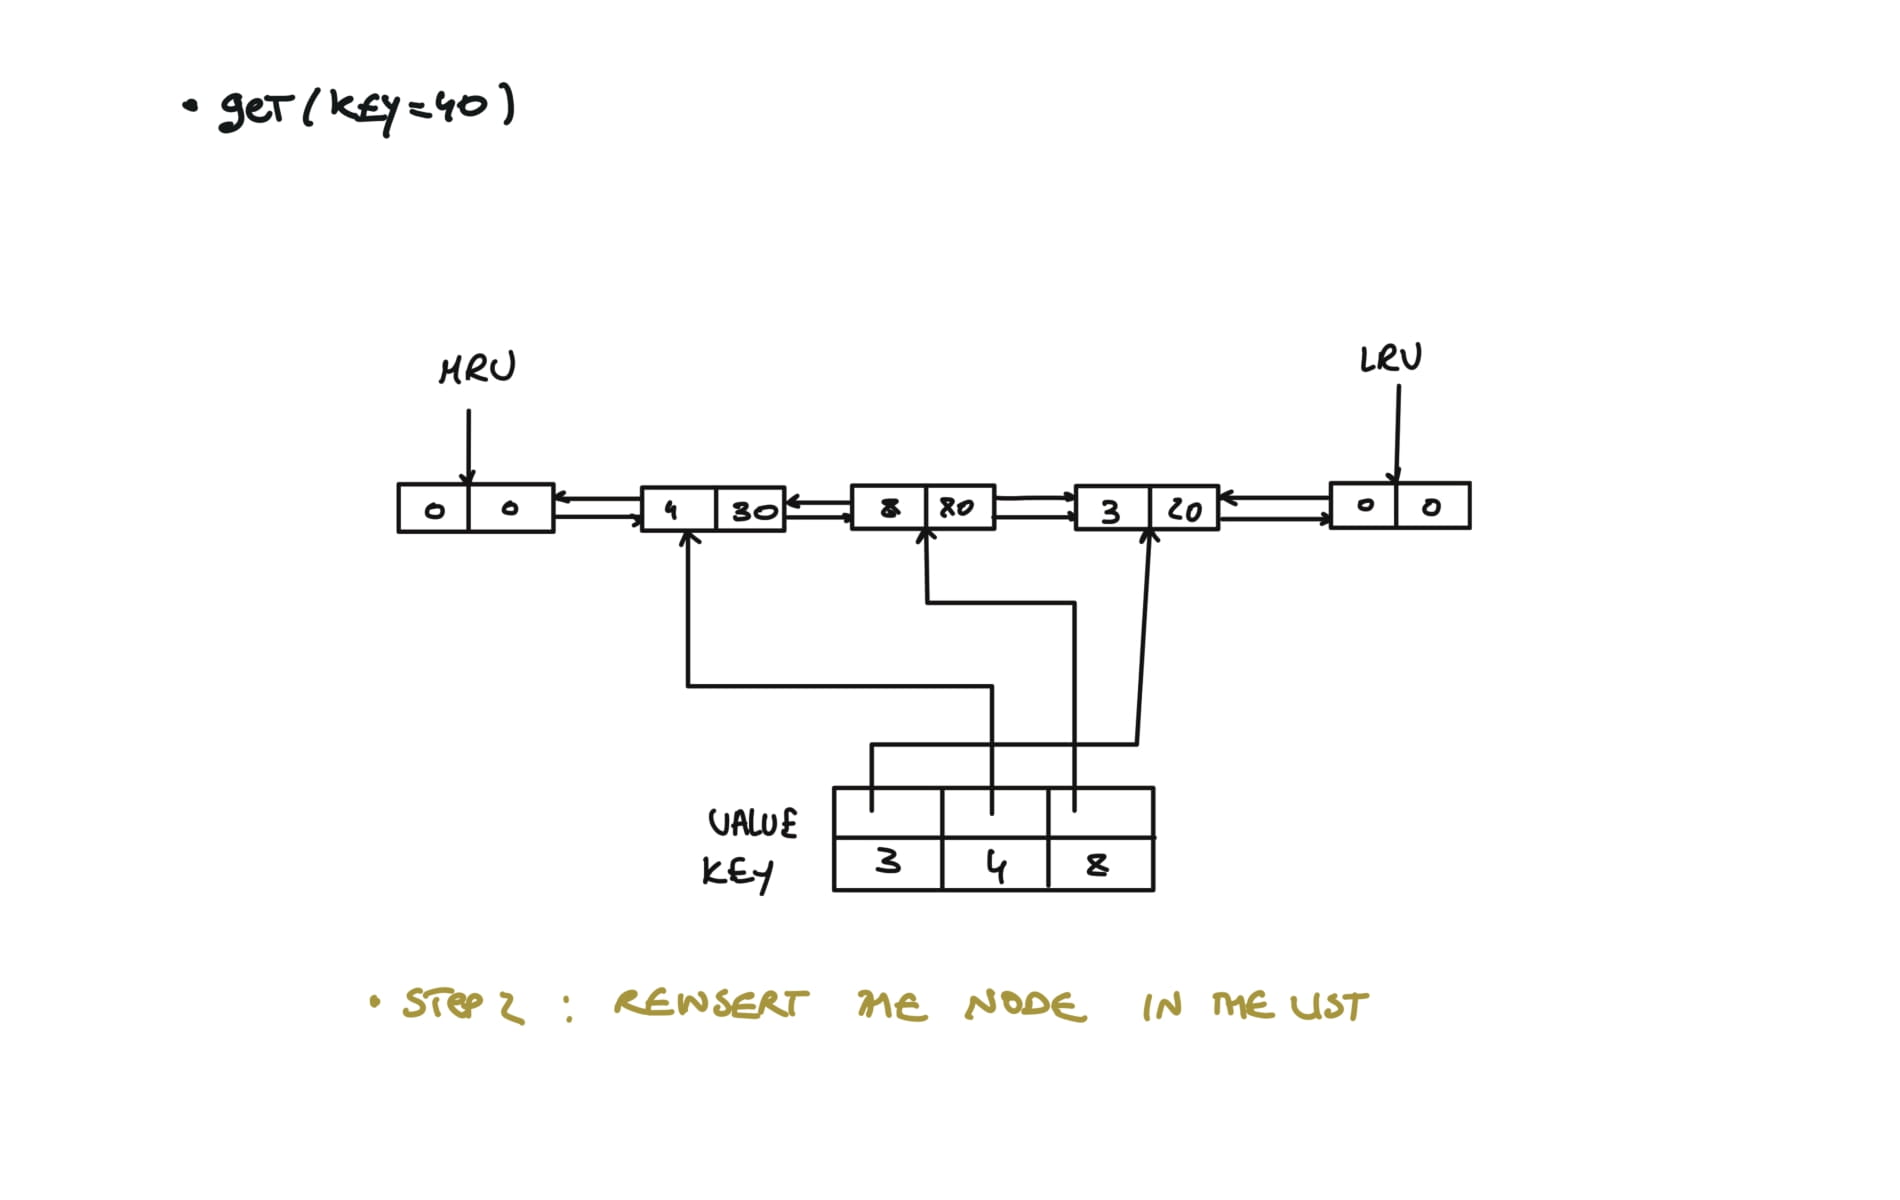 • get(key=40)
MRU LRU
0 0 4 30 8 80 3 20 0 0
VALUE
KEY 3 4 8
• STEP 2 : REINSERT THE NODE IN THE LIST